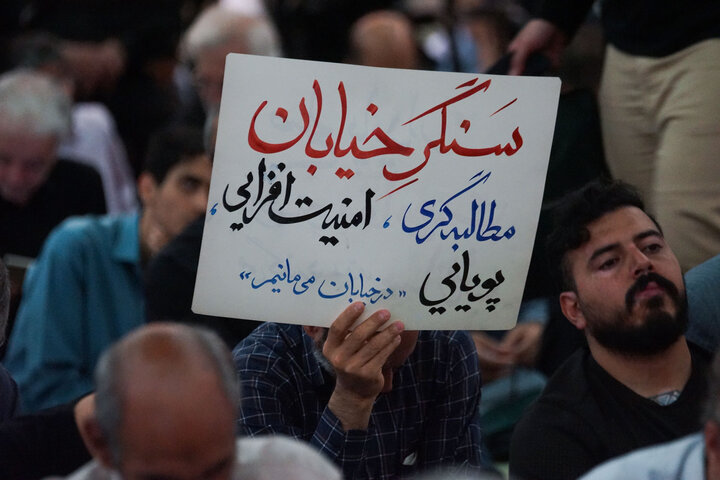 سنگر خیابان
مطالبه‌گری، امنیت افزایی،
پویایی
«در خیابان می‌مانیم»